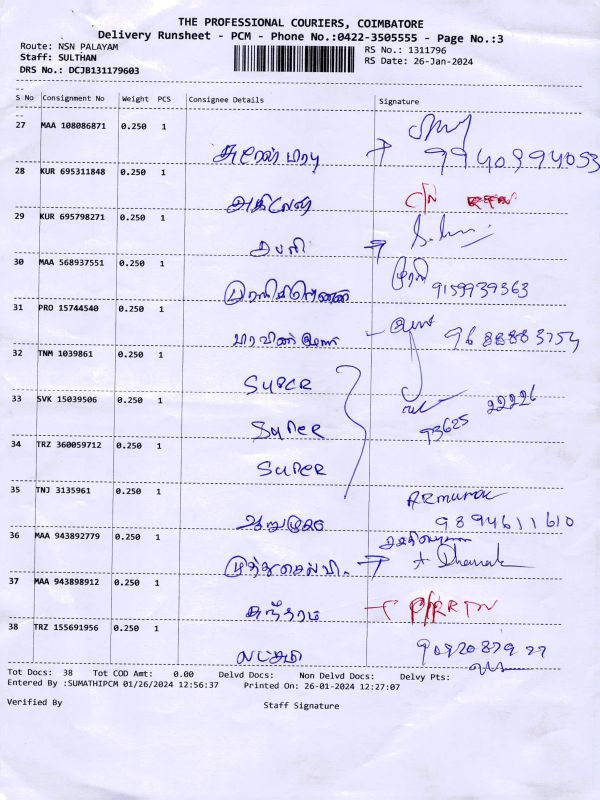 THE PROFESSIONAL COURIERS, COIMBATORE
Delivery Runsheet - PCM - Phone No.:0422-3505555 - Page No.:3
Route: NSN PALAYAM
RS No.: 1311796
Staff: SULTHAN
RS Date: 26-Jan-2024
DRS No.: DCJB131179603
S No Consignment No Weight PCS Consignee Details Signature
27 MAA 108086871 0.250 1
9940994053
28 KUR 695311848 0.250 1
அகிலேஷ்
29 KUR 695798271 0.250 1
கபனி
30 MAA 568937551 0.250 1
9159939363
31 PRO 15744540 0.250 1
9688883754
32 TNM 1039861 0.250 1
SUPER
33 SVK 15039506 0.250 1
93625 22226
SUPER
34 TRZ 360059712 0.250 1
SUPER
35 TNJ 3135961 0.250 1
ஆறுமுகம் 9894611610
36 MAA 943892779 0.250 1
முத்துசெல்வி.
37 MAA 943898912 0.250 1
சுந்தரம்
38 TRZ 155691956 0.250 1
லட்சுமி
Tot Docs: 38 Tot COD Amt: 0.00 Delvd Docs: Non Delvd Docs: Delvy Pts:
Entered By :SUMATHIPCM 01/26/2024 12:56:37 Printed On: 26-01-2024 12:27:07
Verified By Staff Signature